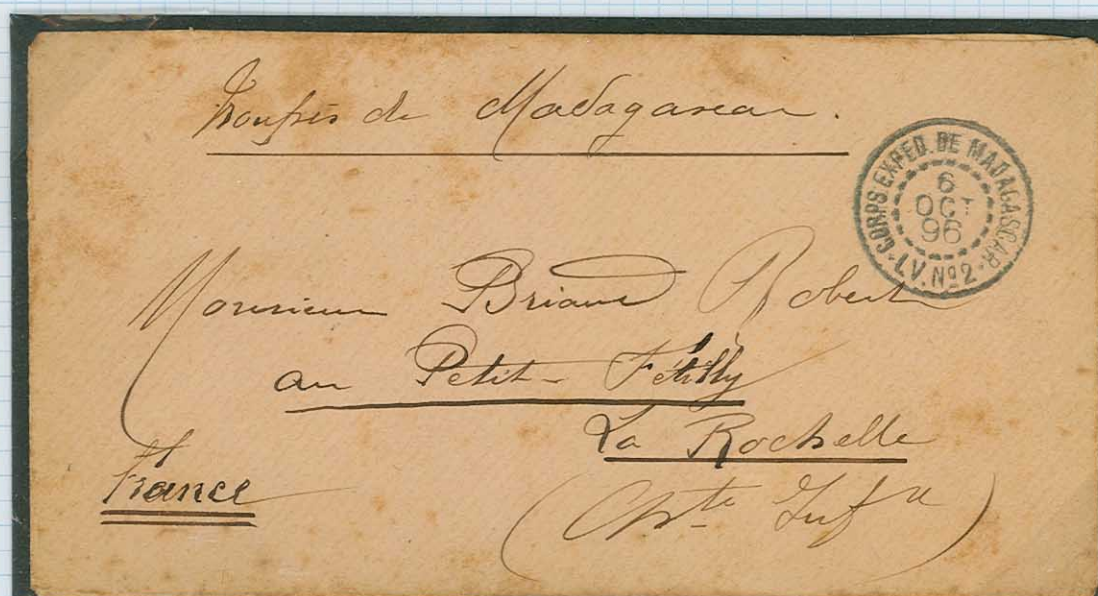 Troupes de Madagascar.
CORPS EXPED. DE MADAGASCAR
6
OCT
96
LV. Nº2
Monsieur Briand Robert
au Petit-Fétilly
La Rochelle
France
(Chte Infre)